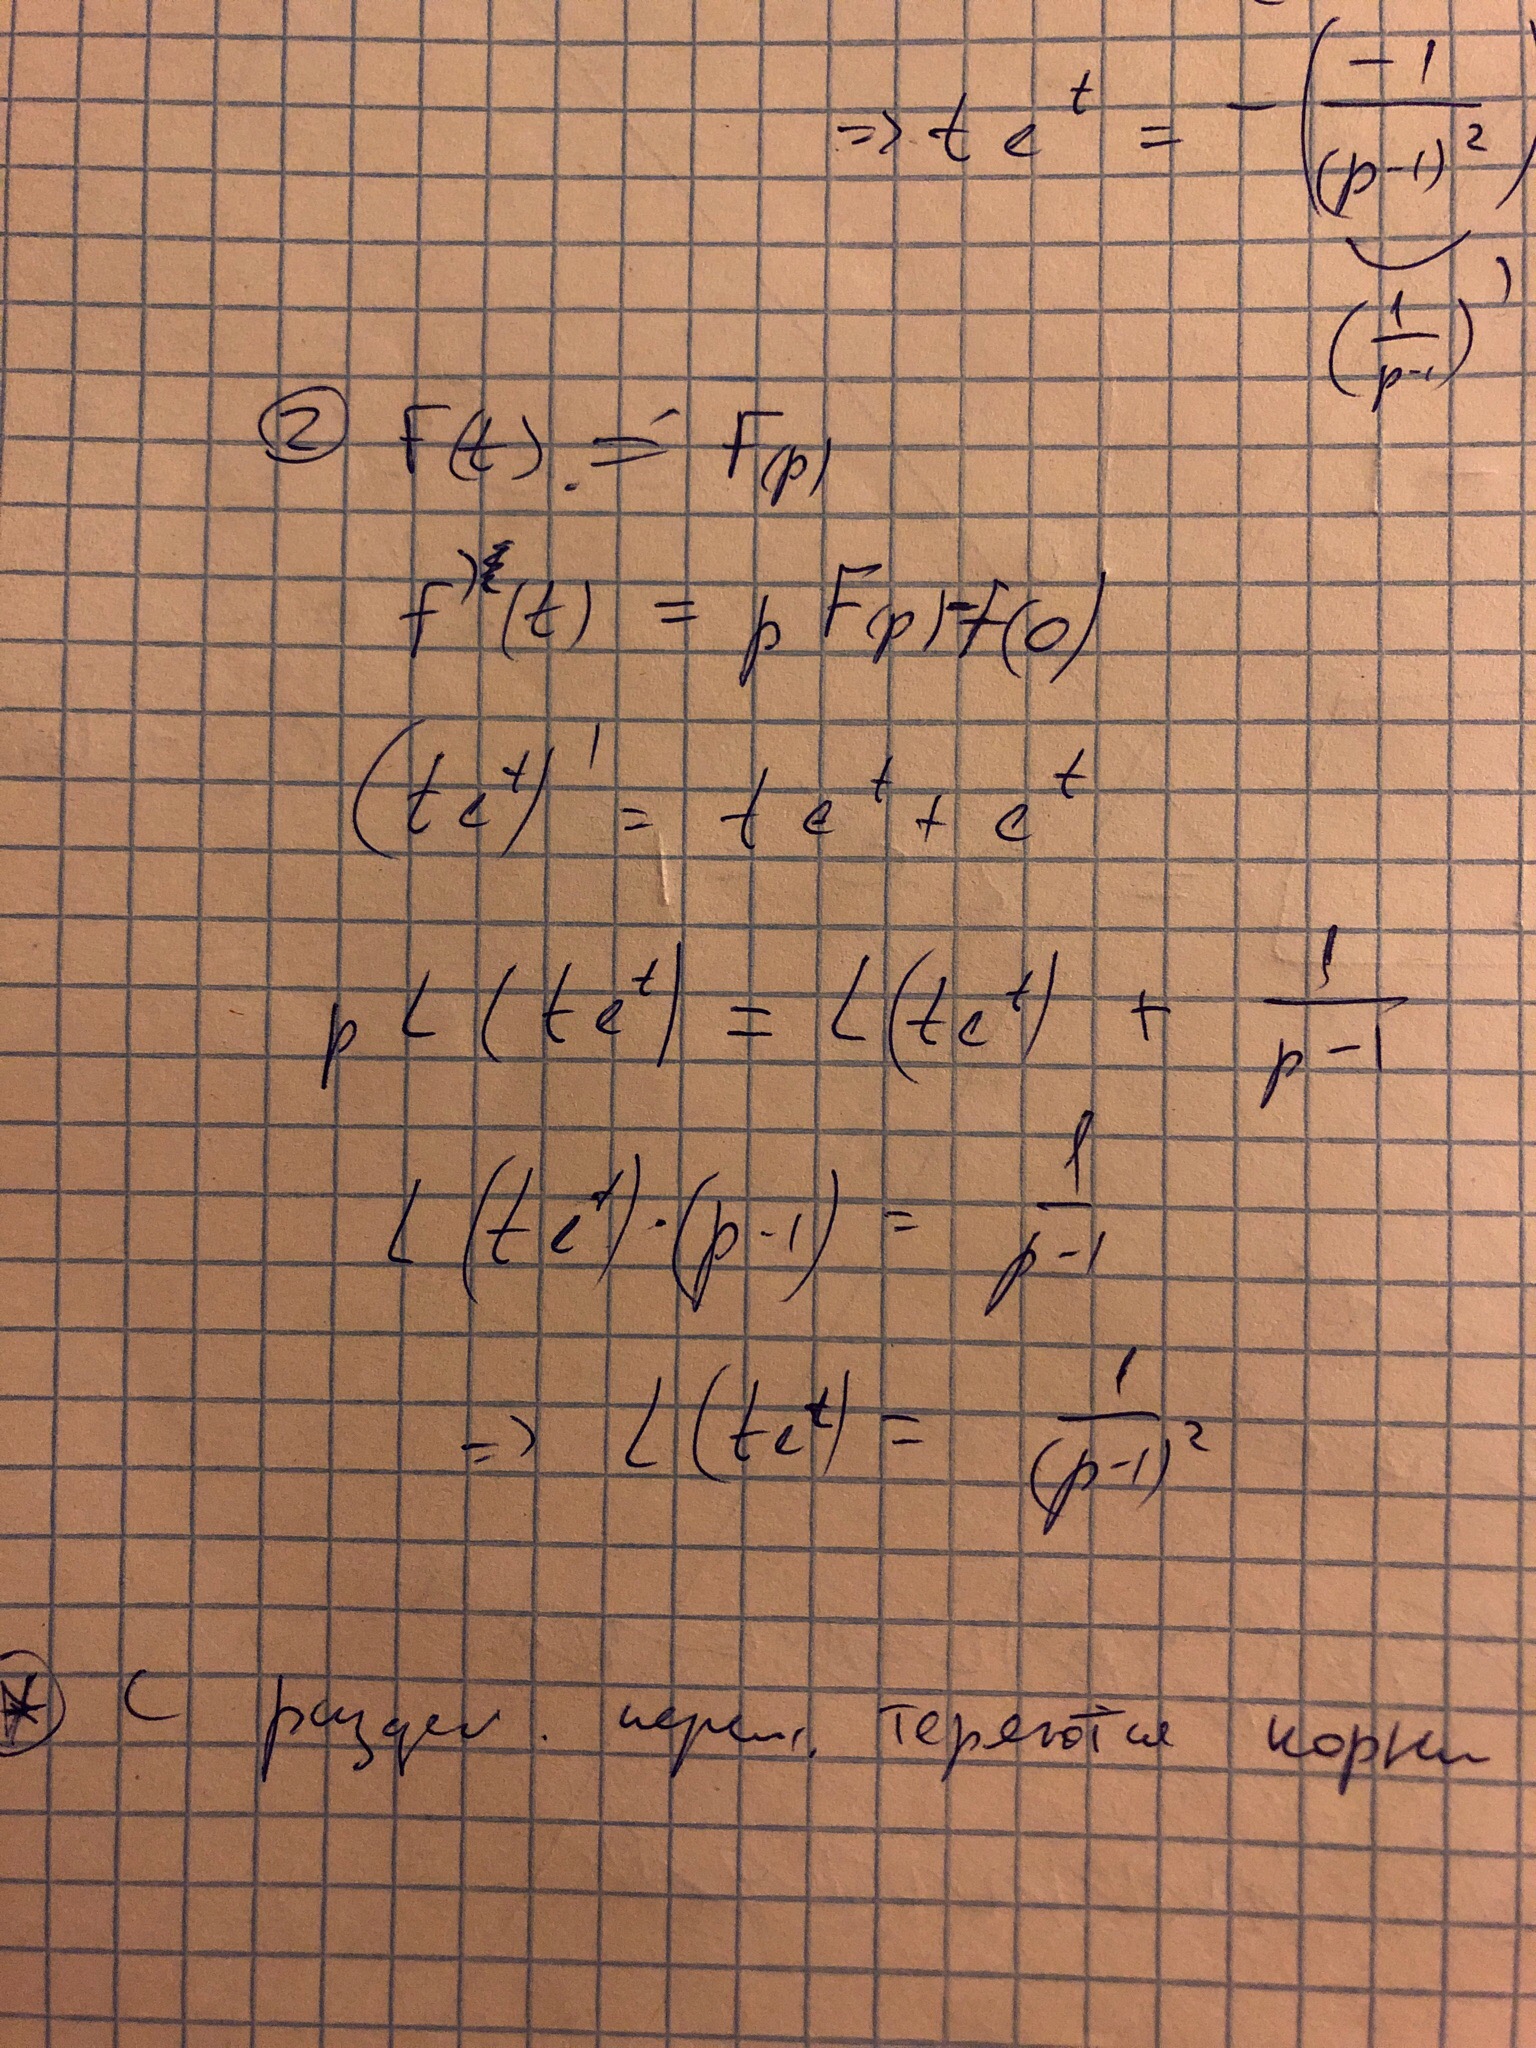 => t e^t = - ( -1 / (p-1)^2 )
( 1 / p-1 )'
② F(t) ≓ F(p)
f'(t) = p F(p) - f(0)
(t e^t)' = t e^t + e^t
p L (t e^t) = L (t e^t) + 1 / p-1
L (t e^t) · (p-1) = 1 / p-1
=> L (t e^t) = 1 / (p-1)^2
* С раздел. перем. теряются корни